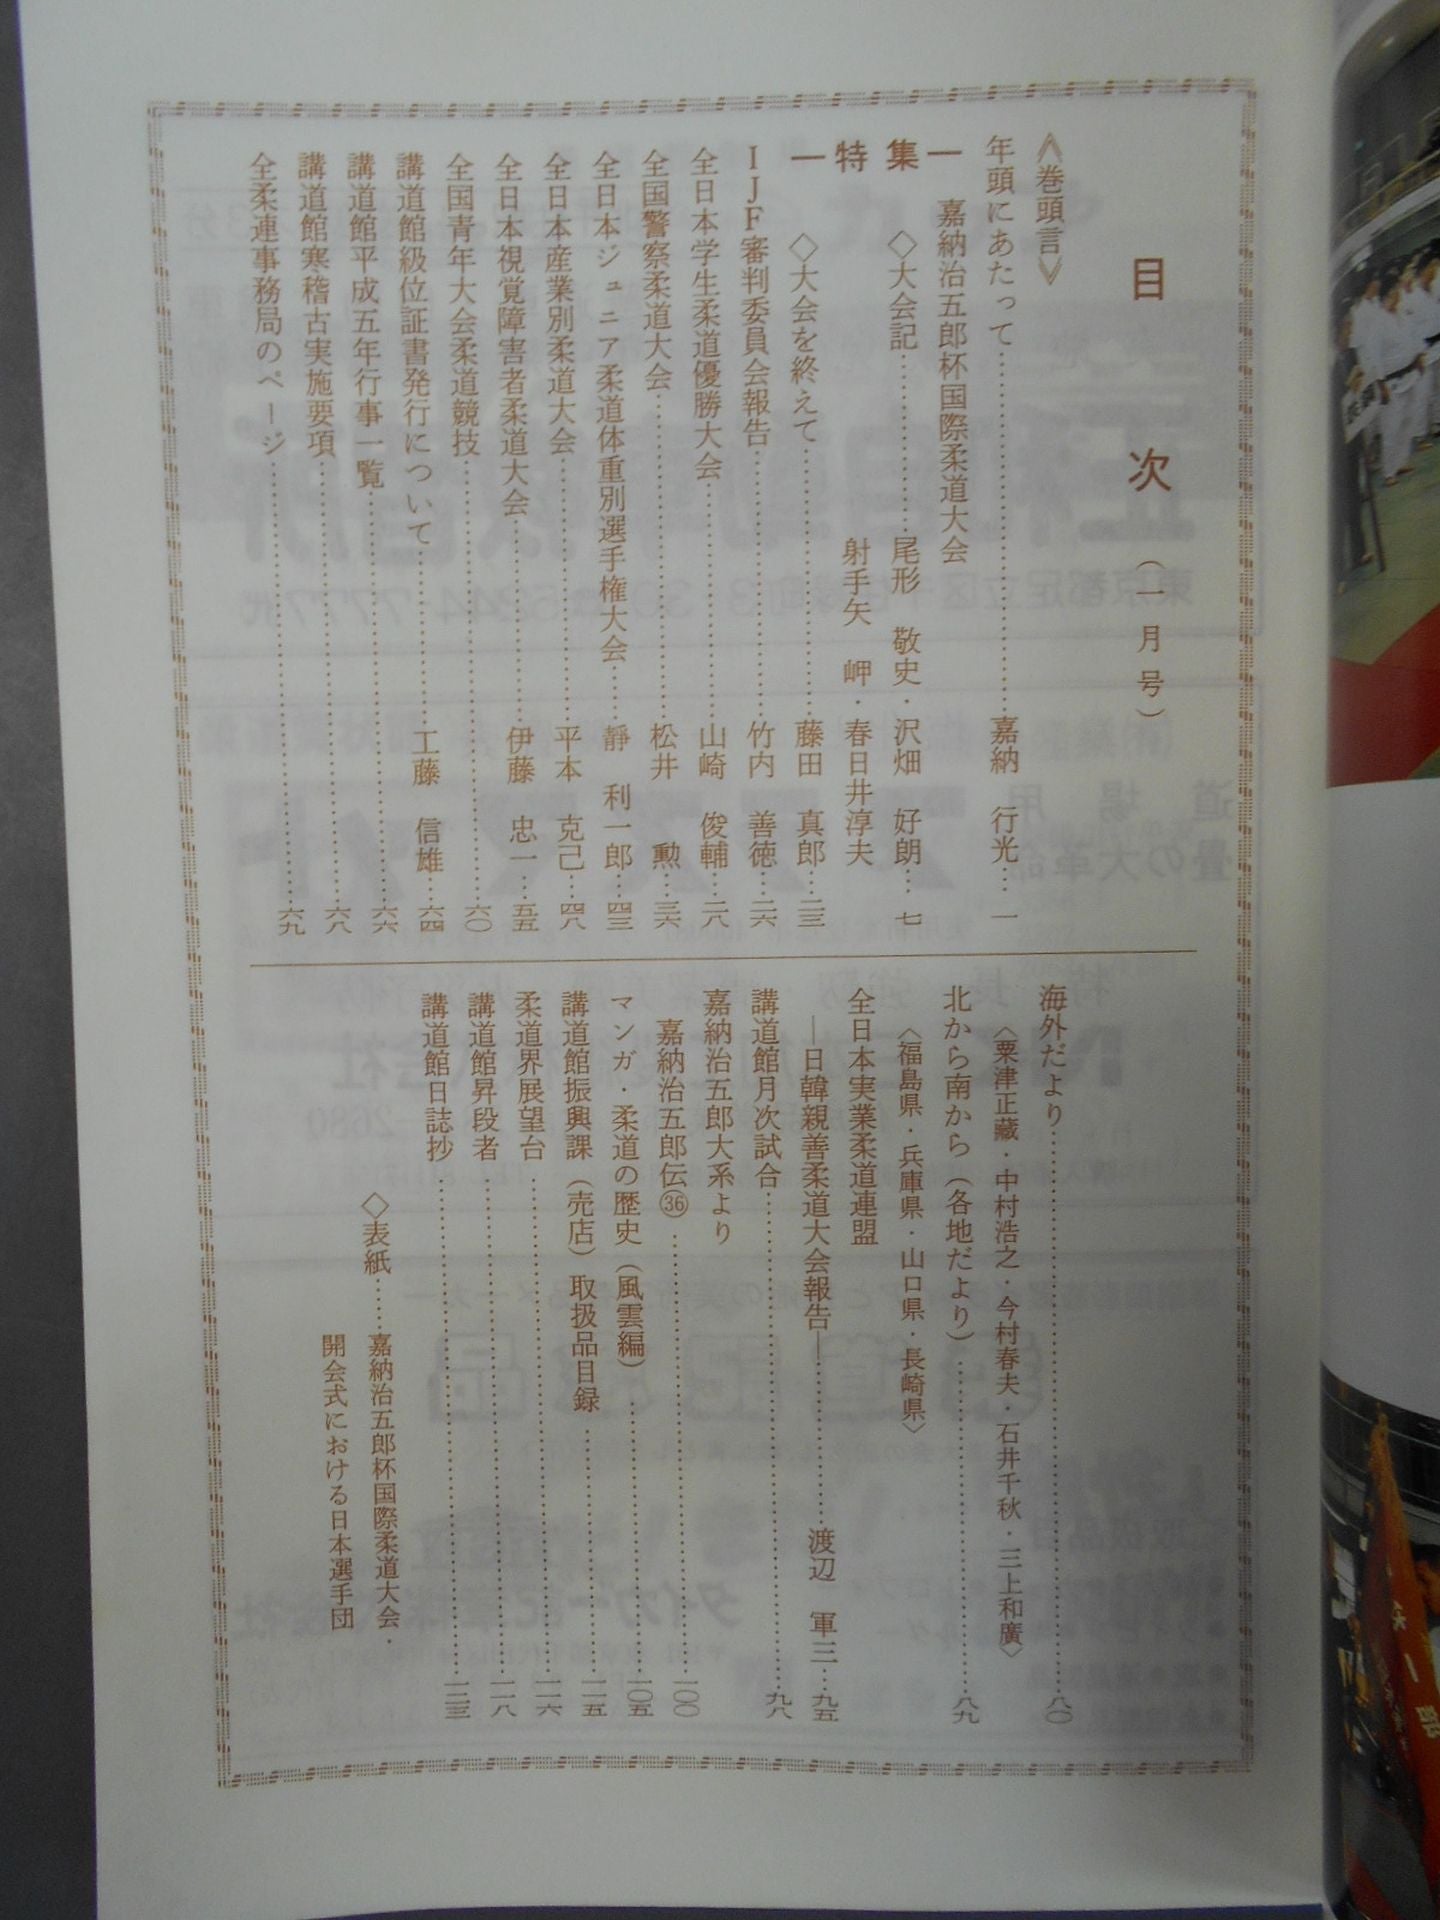 目次（一月号）
《巻頭言》
年頭にあたって……嘉納 行光…一
―特集―
嘉納治五郎杯国際柔道大会
◇大会記……尾形 敬史・沢畑 好朗…七
射手矢 岬・春日井淳夫
◇大会を終えて……藤田 真郎…二三
IJF審判委員会報告……竹内 善徳…二六
全日本学生柔道優勝大会……山崎 俊輔…二八
全国警察柔道大会……松井 勲…三六
全日本ジュニア柔道体重別選手権大会……靜 利一郎…四三
全日本産業別柔道大会……平本 克己…四八
全日本視覚障害者柔道大会……伊藤 忠一…五五
全国青年大会柔道競技……六〇
講道館級位証書発行について……工藤 信雄…六四
講道館平成五年行事一覧……六六
講道館寒稽古実施要項……六八
全柔連事務局のページ……六九
海外だより……八〇
〈粟津正蔵・中村浩之・今村春夫・石井千秋・三上和廣〉
北から南から（各地だより）……八九
〈福島県・兵庫県・山口県・長崎県〉
全日本実業柔道連盟
―日韓親善柔道大会報告―……渡辺 軍三…九五
講道館月次試合……九八
嘉納治五郎大系より
嘉納治五郎伝㊱……一〇〇
マンガ・柔道の歴史（風雲編）……一〇五
講道館振興課（売店）取扱品目録……一一五
柔道界展望台……一一六
講道館昇段者……一一八
講道館日誌抄……一二三
◇表紙……嘉納治五郎杯国際柔道大会・
開会式における日本選手団